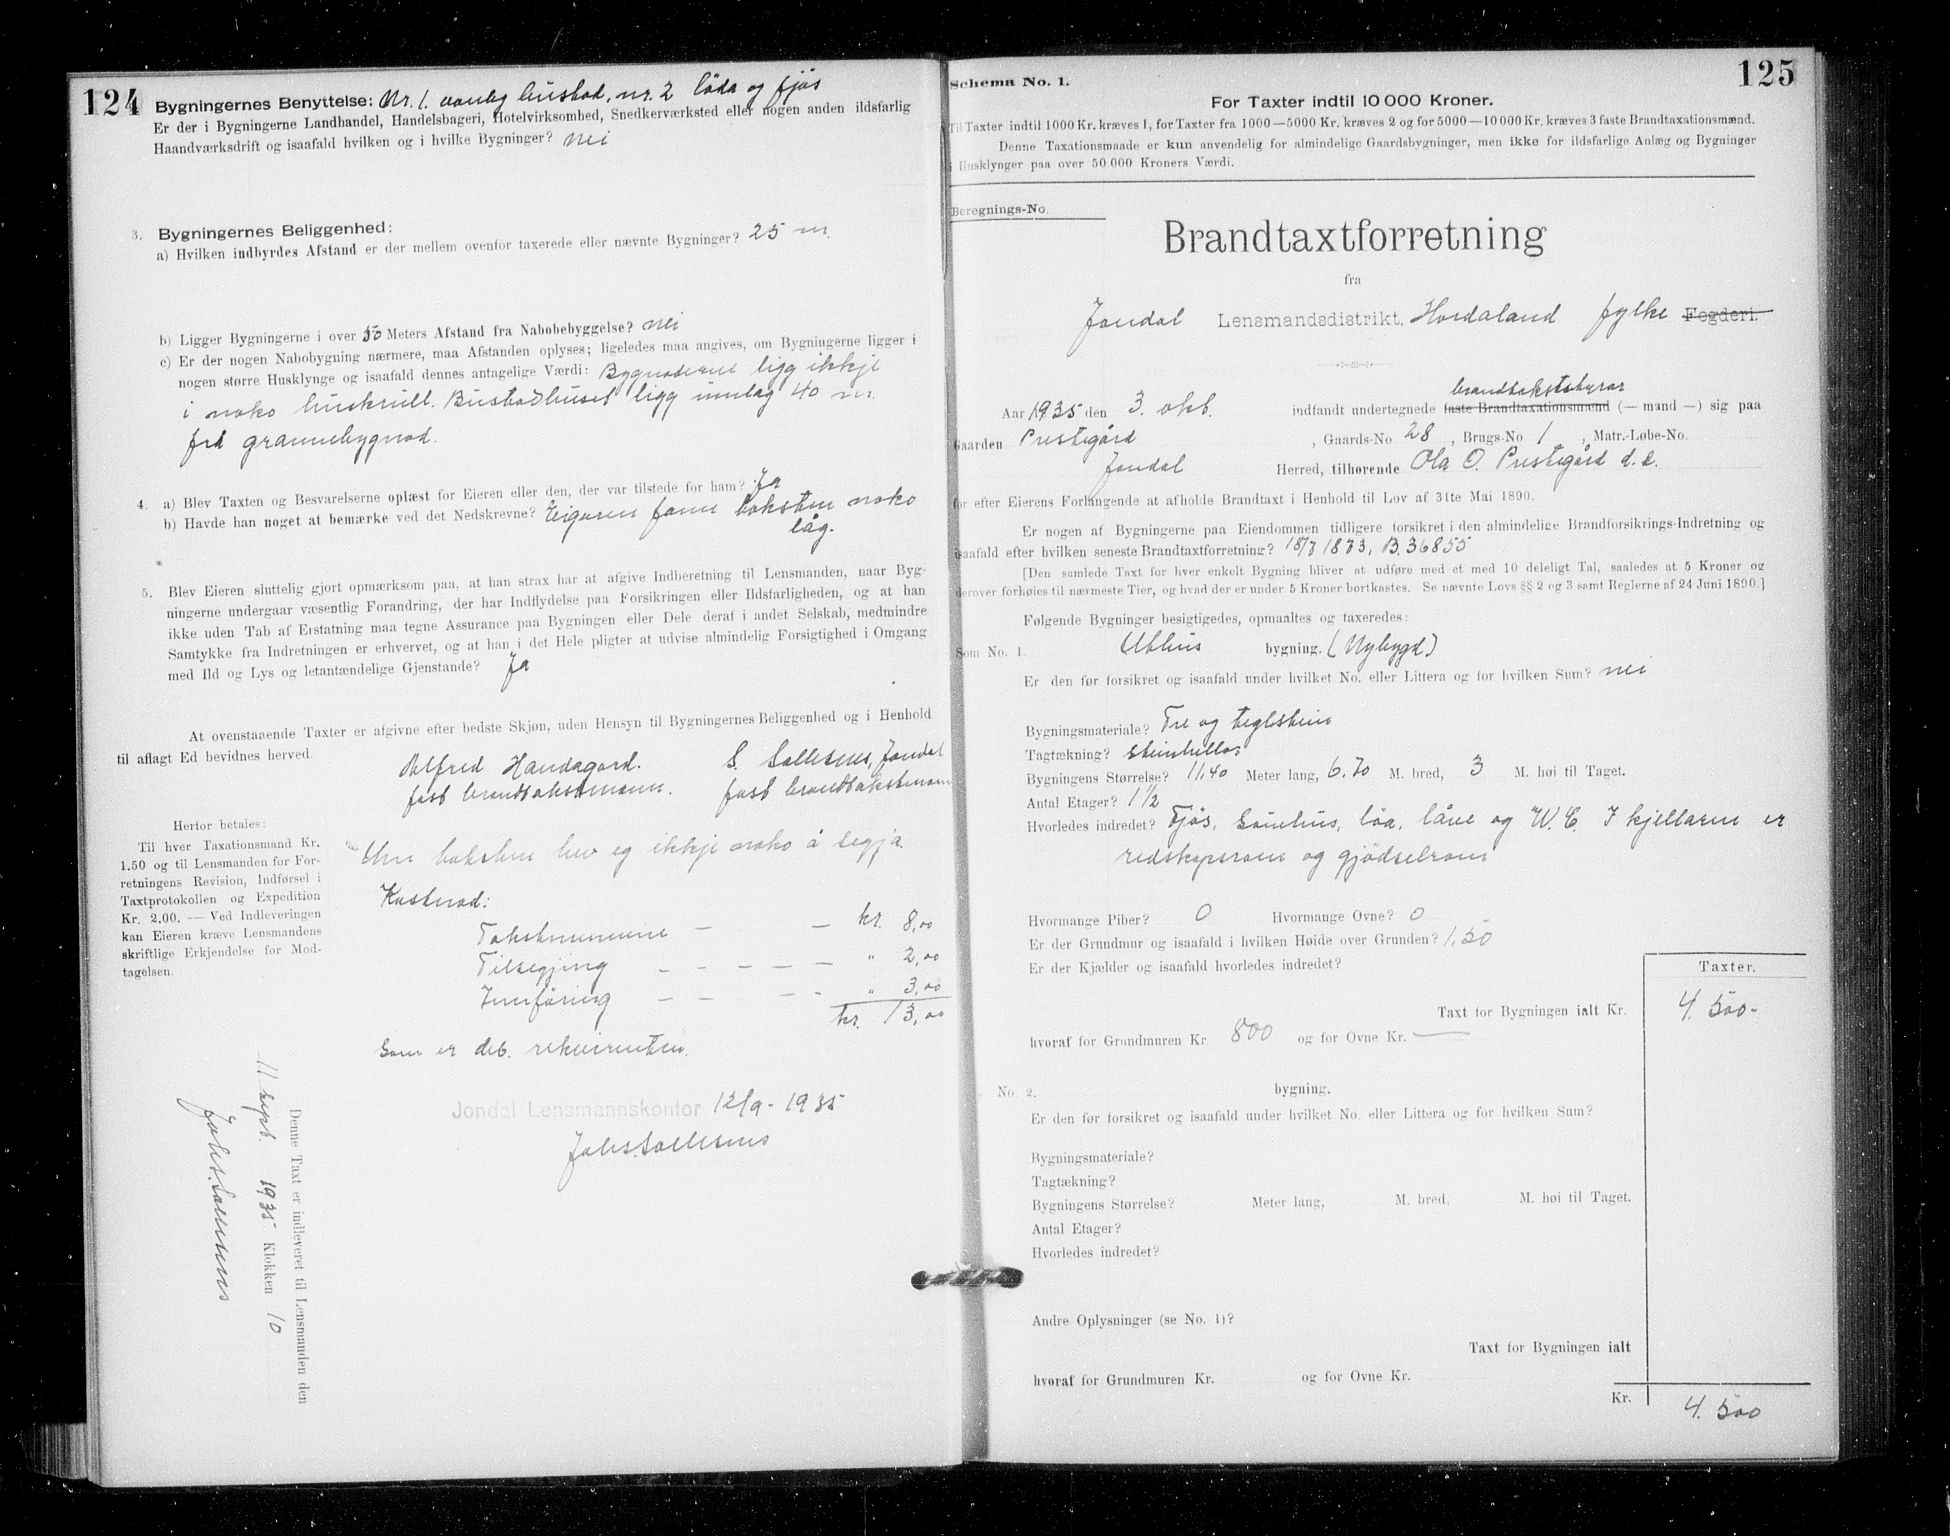 124
Bygningernes Benyttelse: Nr. 1. vanleg bustad, nr. 2 löda og fjös
Er der i Bygningerne Landhandel, Handelsbageri, Hotelvirksomhed, Snedkerværksted eller nogen anden ildsfarlig
Haandværksdrift og isaafald hvilken og i hvilke Bygninger? nei
3. Bygningernes Beliggenhed:
a) Hvilken indbyrdes Afstand er der mellem ovenfor taxerede eller nævnte Bygninger? 25 m
b) Ligger Bygningerne i over 50 Meters Afstand fra Nabobebyggelse? nei
c) Er der nogen Nabobygning nærmere, maa Afstanden oplyses; ligeledes maa angives, om Bygningerne ligger i
nogen større Husklynge og isaafald dennes antagelige Værdi: Bygnaderne ligg ikkje
i noko huskrull. Bustadhuset ligg umlag 40 m.
frå grannebygnad.
4. a) Blev Taxten og Besvarelserne oplæst for Eieren eller den, der var tilstede for ham? Ja
b) Havde han noget at bemærke ved det Nedskrevne? Eigaren fann taksten noko
låg.
5. Blev Eieren sluttelig gjort opmærksom paa, at han strax har at afgive Indberetning til Lensmanden, naar Byg-
ningerne undergaar væsentlig Forandring, der har Indflydelse paa Forsikringen eller Ildsfarligheden, og at han
ikke uden Tab af Erstatning maa tegne Assurance paa Bygningen eller Dele deraf i andet Selskab, medmindre
Samtykke fra Indretningen er erhvervet, og at han i det Hele pligter at udvise almindelig Forsigtighed i Omgang
med Ild og Lys og letantændelige Gjenstande? Ja
At ovenstaaende Taxter er afgivne efter bedste Skjøn, uden Hensyn til Bygningernes Beliggenhed og i Henhold
til aflagt Ed bevidnes herved.
Alfred Handagard. S. Sollesnes, Jondal
fast brandtakstmann. fast brandtakstmann
Herfor betales:
Til hver Taxationsmand Kr.
1.50 og til Lensmanden for For-
retningens Revision, Indførsel i
Taxtprotokollen og Expedition
Kr. 2.00. — Ved Indleveringen
kan Eieren kræve Lensmandens
skriftlige Erkjendelse for Mod-
tagelsen.
Um taksten hev eg ikkje noko å segja.
Kostnad:
Takstmennene — — kr. 8,00
Tilsegjing — — — — — " 2,00
Innföring — — — — " 3,00
kr. 13,00
som er deb. rekvirenten.
Jondal Lensmannskontor 12/9 - 1935
Johs. Sollesnes
Denne Taxt er indleveret til Lensmanden den
11 sept. 1935 Klokken 10
Johs. Sollesnes
125
Schema No. 1.
For Taxter indtil 10 000 Kroner.
Til Taxter indtil 1000 Kr. kræves 1, for Taxter fra 1000—5000 Kr. kræves 2 og for 5000—10 000 Kr. kræves 3 faste Brandtaxationsmænd.
Denne Taxationsmaade er kun anvendelig for almindelige Gaardsbygninger, men ikke for ildsfarlige Anlæg og Bygninger
i Husklynger paa over 50 000 Kroners Værdi.
Beregnings-No.
Brandtaxtforretning
fra
Jondal Lensmandsdistrikt, Hordaland fylke Fogderi.
brandtakststyrar
Aar 1935 den 3. okt. indfandt undertegnede faste Brandtaxationsmænd (— mand —) sig paa
Gaarden Prestegård, Gaards-No. 28, Brugs-No 1, Matr.-Løbe-No.
Jondal Herred, tilhørende Ola O. Prestegård d.e.
for efter Eierens Forlangende at afholde Brandtaxt i Henhold til Lov af 31te Mai 1890.
Er nogen af Bygningerne paa Eiendommen tidligere forsikret i den almindelige Brandforsikrings-Indretning og
isaafald efter hvilken seneste Brandtaxtforretning? 18/7 1873, B. 36855
[Den samlede Taxt for hver enkelt Bygning bliver at udføre med et med 10 deleligt Tal, saaledes at 5 Kroner og
derover forhøies til nærmeste Tier, og hvad der er under 5 Kroner bortkastes. Se nævnte Lovs §§ 2 og 3 samt Reglerne af 24 Juni 1890.]
Følgende Bygninger besigtigedes, opmaaltes og taxeredes:
Som No. 1. Uthus bygning. (Nybygd)
Er den før forsikret og isaafald under hvilket No. eller Littera og for hvilken Sum? nei
Bygningsmateriale? Tre og teglstein
Tagtækning? steinhellor
Bygningens Størrelse? 11,40 Meter lang, 6,70 M. bred, 3 M. høi til Taget.
Antal Etager? 1 1/2
Hvorledes indredet? Fjös, sauehus, löa, låve og W.C. I kjellaren er
redskapsrom og gjödselrom
Hvormange Piber? 0 Hvormange Ovne? 0
Er der Grundmur og isaafald i hvilken Høide over Grunden? 1,50
Er der Kjælder og isaafald hvorledes indredet?
Taxter.
Taxt for Bygningen ialt Kr. 4.500-
hvoraf for Grundmuren Kr. 800 og for Ovne Kr. —
No. 2. bygning.
Er den før forsikret og isaafald under hvilket No. eller Littera og for hvilken Sum?
Bygningsmateriale?
Tagtækning?
Bygningens Størrelse? Meter lang, M. bred, M. høi til Taget.
Antal Etager?
Hvorledes indredet?
Andre Oplysninger (se No. 1)?
Taxt for Bygningen ialt
hvoraf for Grundmuren Kr. og for Ovne Kr.
Kr. 4.500